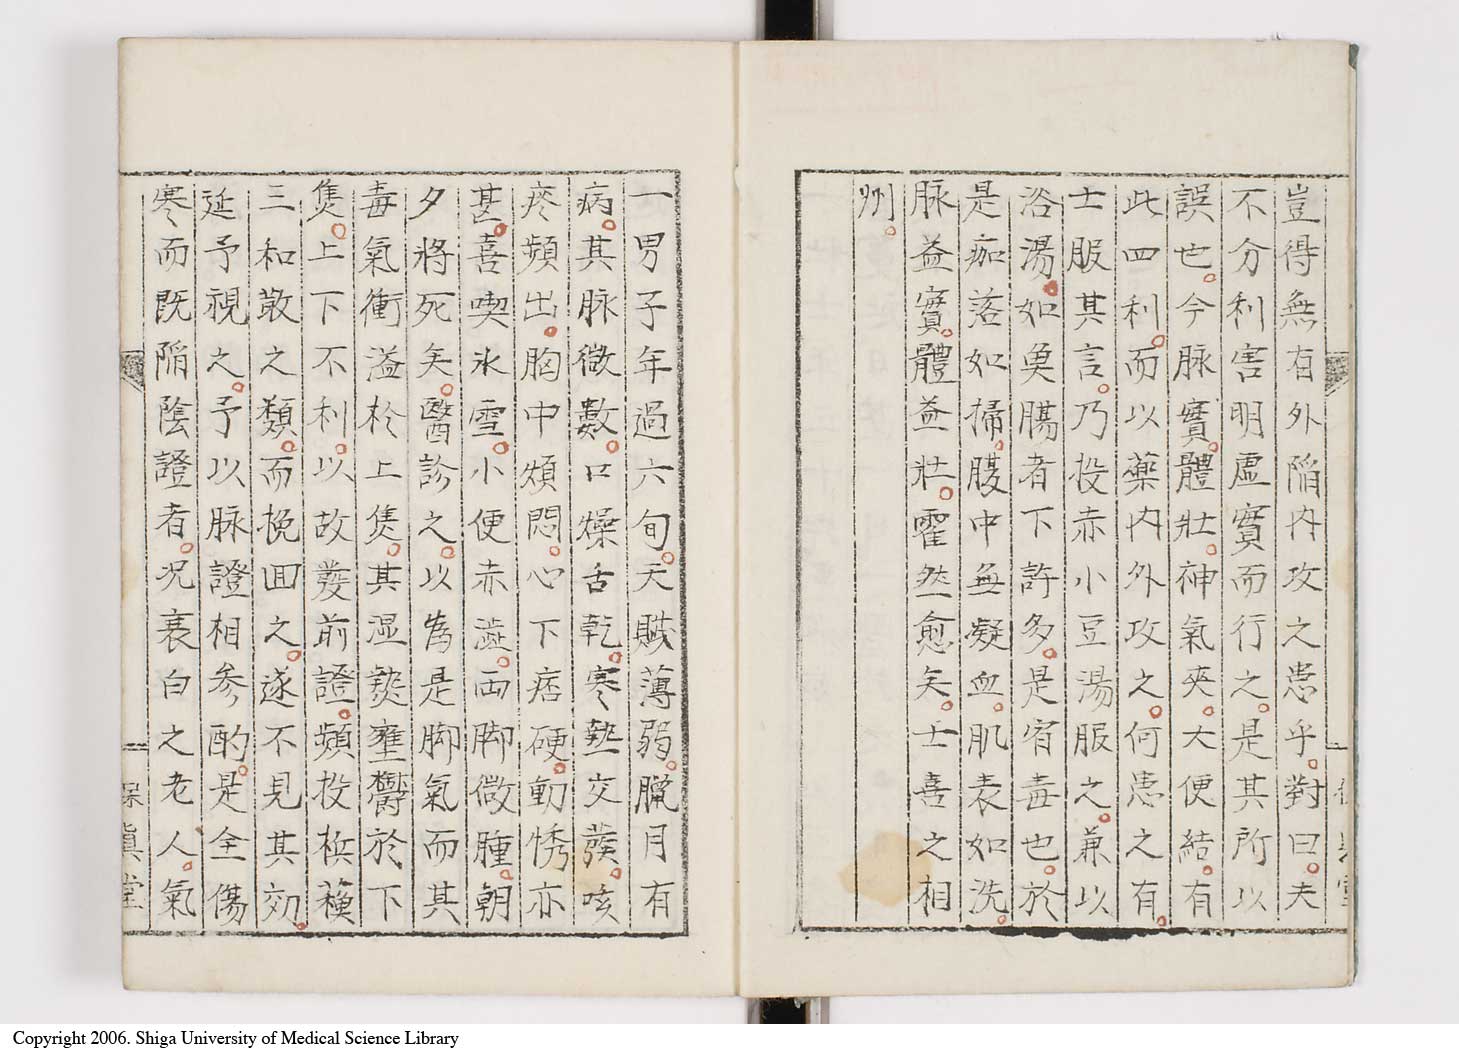 豈得無有外陥内攻之患乎。對曰。夫
不分利害明虚實而行之。是其所以
誤也。今脉實。體壯。神氣爽。大便結。有
此四利。而以藥内外攻之。何患之有。
士服其言。乃投赤小豆湯服之。兼以
浴湯。如奠腸者下許多。是宿毒也。於
是痂落如掃。腹中無凝血。肌表如洗。
脉益實。體益壯。霍然愈矣。士喜之相
州。
一男子年過六旬。天賦薄弱。臘月有
病。其脉微數。口燥舌乾。寒熱交發。咳
疼頻出。胸中煩悶。心下痞硬。動悸亦
甚。喜喫氷雪。小便赤澁。両脚微腫。朝
夕將死矣。醫診之。以爲是脚氣而其
毒氣衝溢於上焦。其湿熱壅鬱於下
焦。上下不利。以故發前證。頻投檳蘓
三和散之類。而挽回之。遂不見其効。
延予視之。予以脉證相参酌。是全傷
寒而既陥陰證者。况衰白之老人。氣
保眞堂
Copyright 2006. Shiga University of Medical Science Library